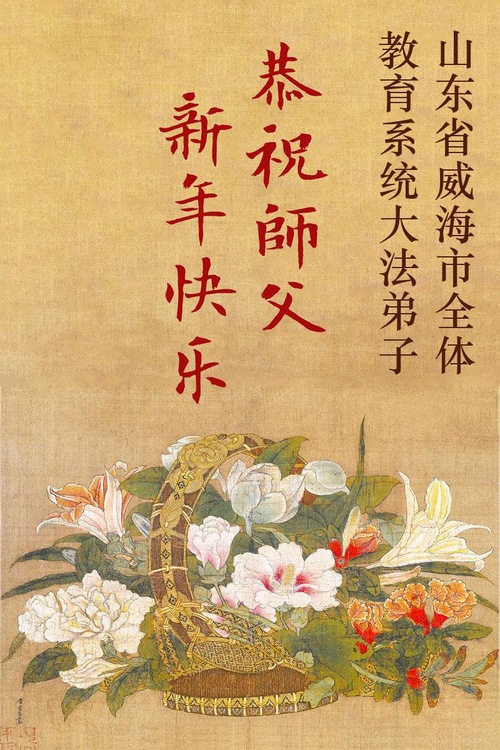 山东省威海市全体
教育系统大法弟子
恭祝師父
新年快乐